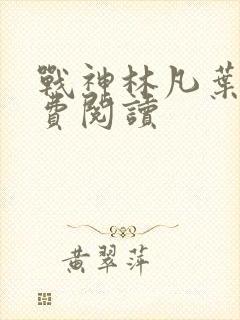 戰神林凡葉
費閱讀
黃翠萍